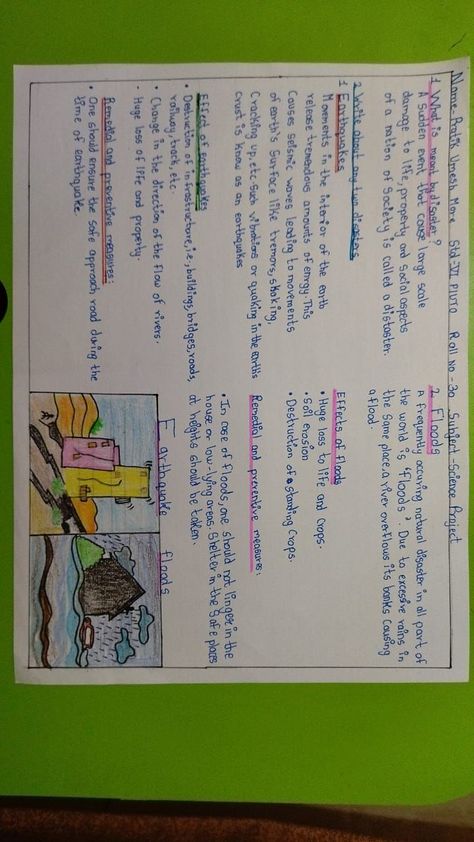 Name Pratik Umesh More Std-VI Pluto Roll no-30 Subject-Science Project
1 What is meant by disaster?
A Sudden event that cause large scale
damage to life, property and social aspects
of a nation of society is called a distaster.
2 Write about any two disastas
1 Earthquakes
Movements in the interior of the earth
release tremendous amounts of enrgy. This
Causes seismic waves leading to movements
of earth's surface like tremors, shaking,
Cracking up, etc. Such vibrations or quaking in the earth's
crust is know as an earthquakes
Effect of earthquakes
• Destruction of infrastructure, i.e, buildings, bridges, roads,
railway, track, etc.
• Change in the direction of the flow of rivers.
• Huge loss of life and property.
Remedial and preventive measures:
• One should ensure the safe approach, road during the
time of earthquake
2. Floods
A frequently occuring natural disaster in all part of
the world is 'floods'. Due to excessive rains in
the same place, a river overflows its banks causing
a flood.
Effects of floods
• Huge loss to life and crops.
• Soil erosion
• Destruction of standing crops.
Remedial and preventive measures:
• In case of floods, one should not linger in the
house or low-lying areas. Shelter in the safe places,
at heights should be taken.
Earthquake floods